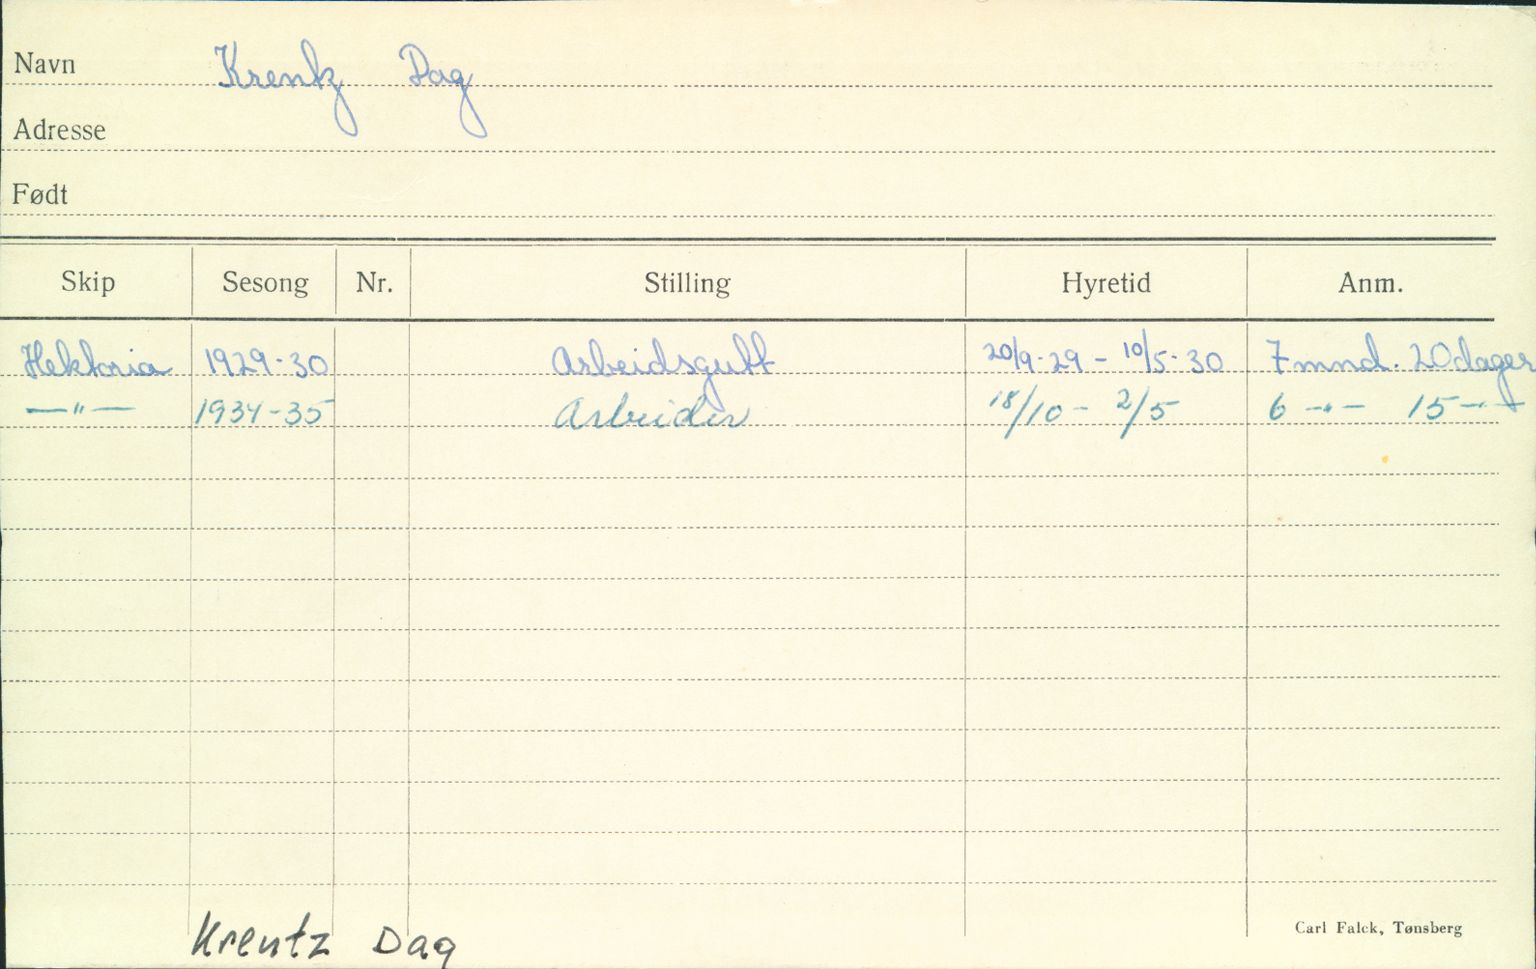 Navn Krentz Dag
Adresse
Født
Skip Sesong Nr. Stilling Hyretid Anm.
Hektoria 1929-30 Arbeidsgutt 20/9-29 - 10/5-30 7 mnd. 20 dager
—"— 1934-35 Arbeider 18/10 - 2/5 6 —"— 15 —"—
Krentz Dag
Carl Falck, Tønsberg